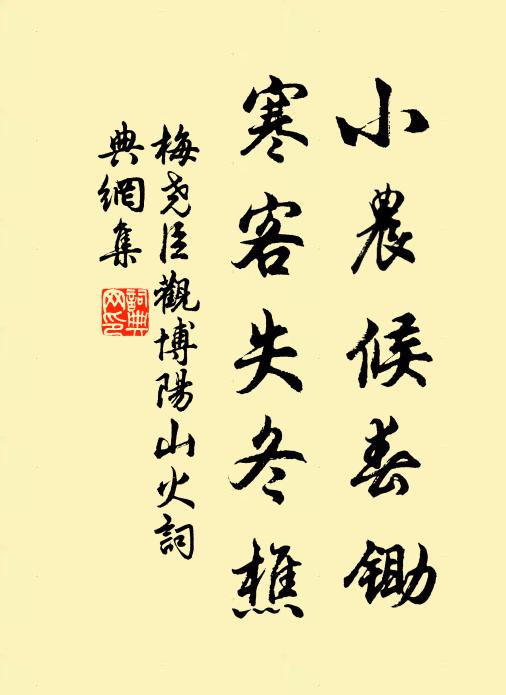 小農候春鋤
寒客失冬樵
梅堯臣觀博陽山火詞
典網集
詞典網印